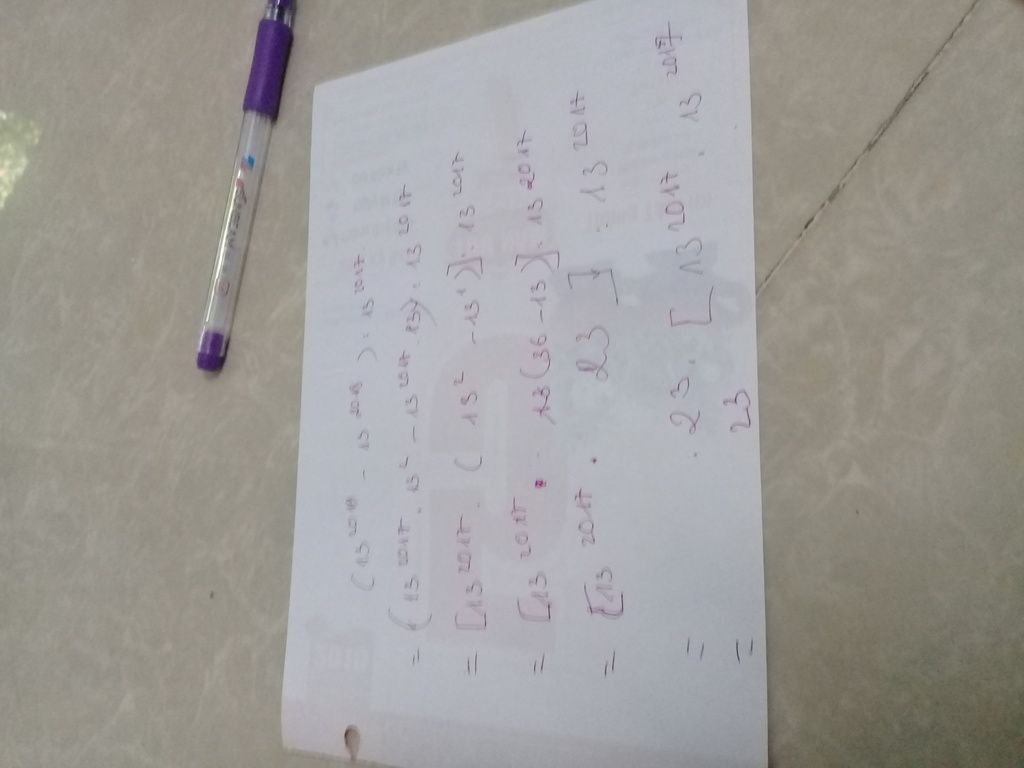 (13^2019 - 13^2018) : 13^2017
= (13^2017 . 13^2 - 13^2017 . 13) : 13^2017
= [13^2017 . (13^2 - 13^1)] : 13^2017
= [13^2017 . 13 (36 - 13)] : 13^2017
= [13^2017 . 23] : 13^2017
= 23 . [13^2017 . 13^2017
= 23